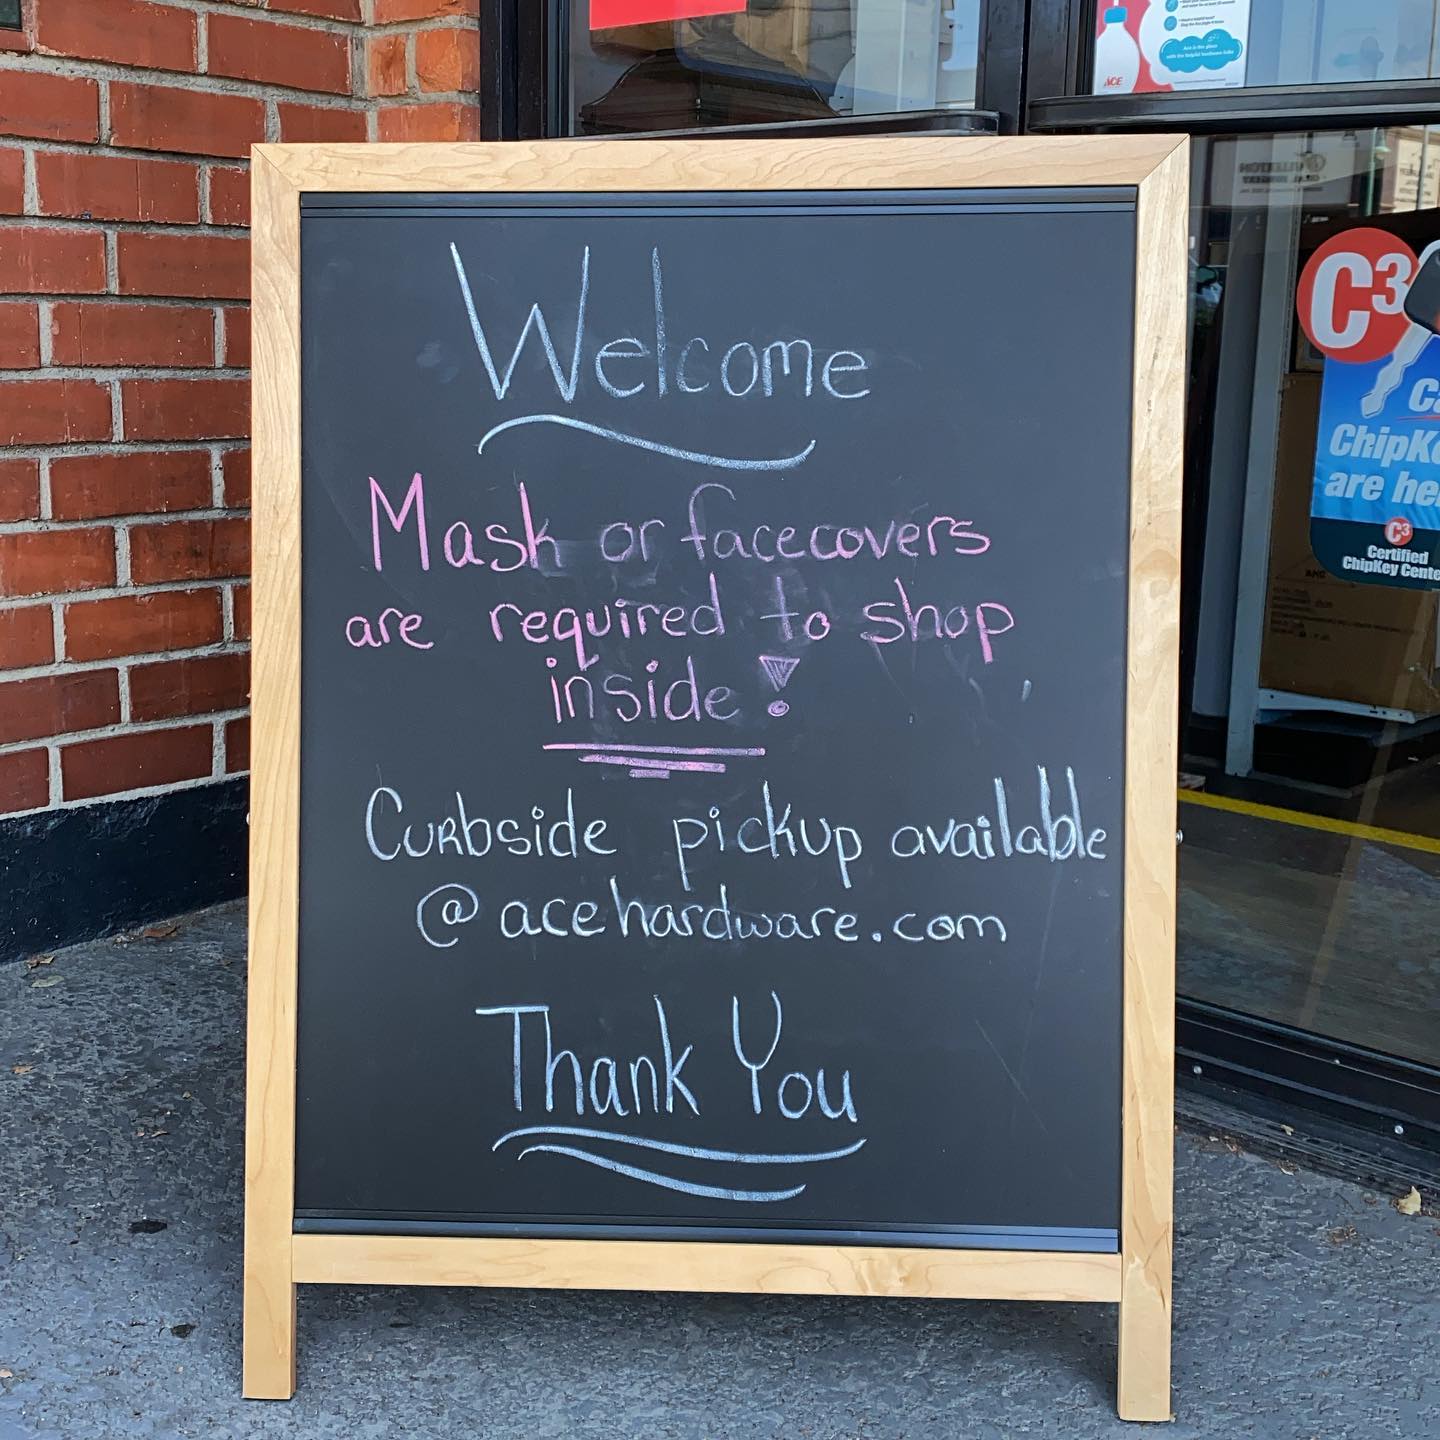 Welcome
Mask or facecovers
are required to shop
inside!
Curbside pickup available
@ acehardware.com
Thank You
ACE
C3
ChipKe
are he
C3
Certified
ChipKey Cente